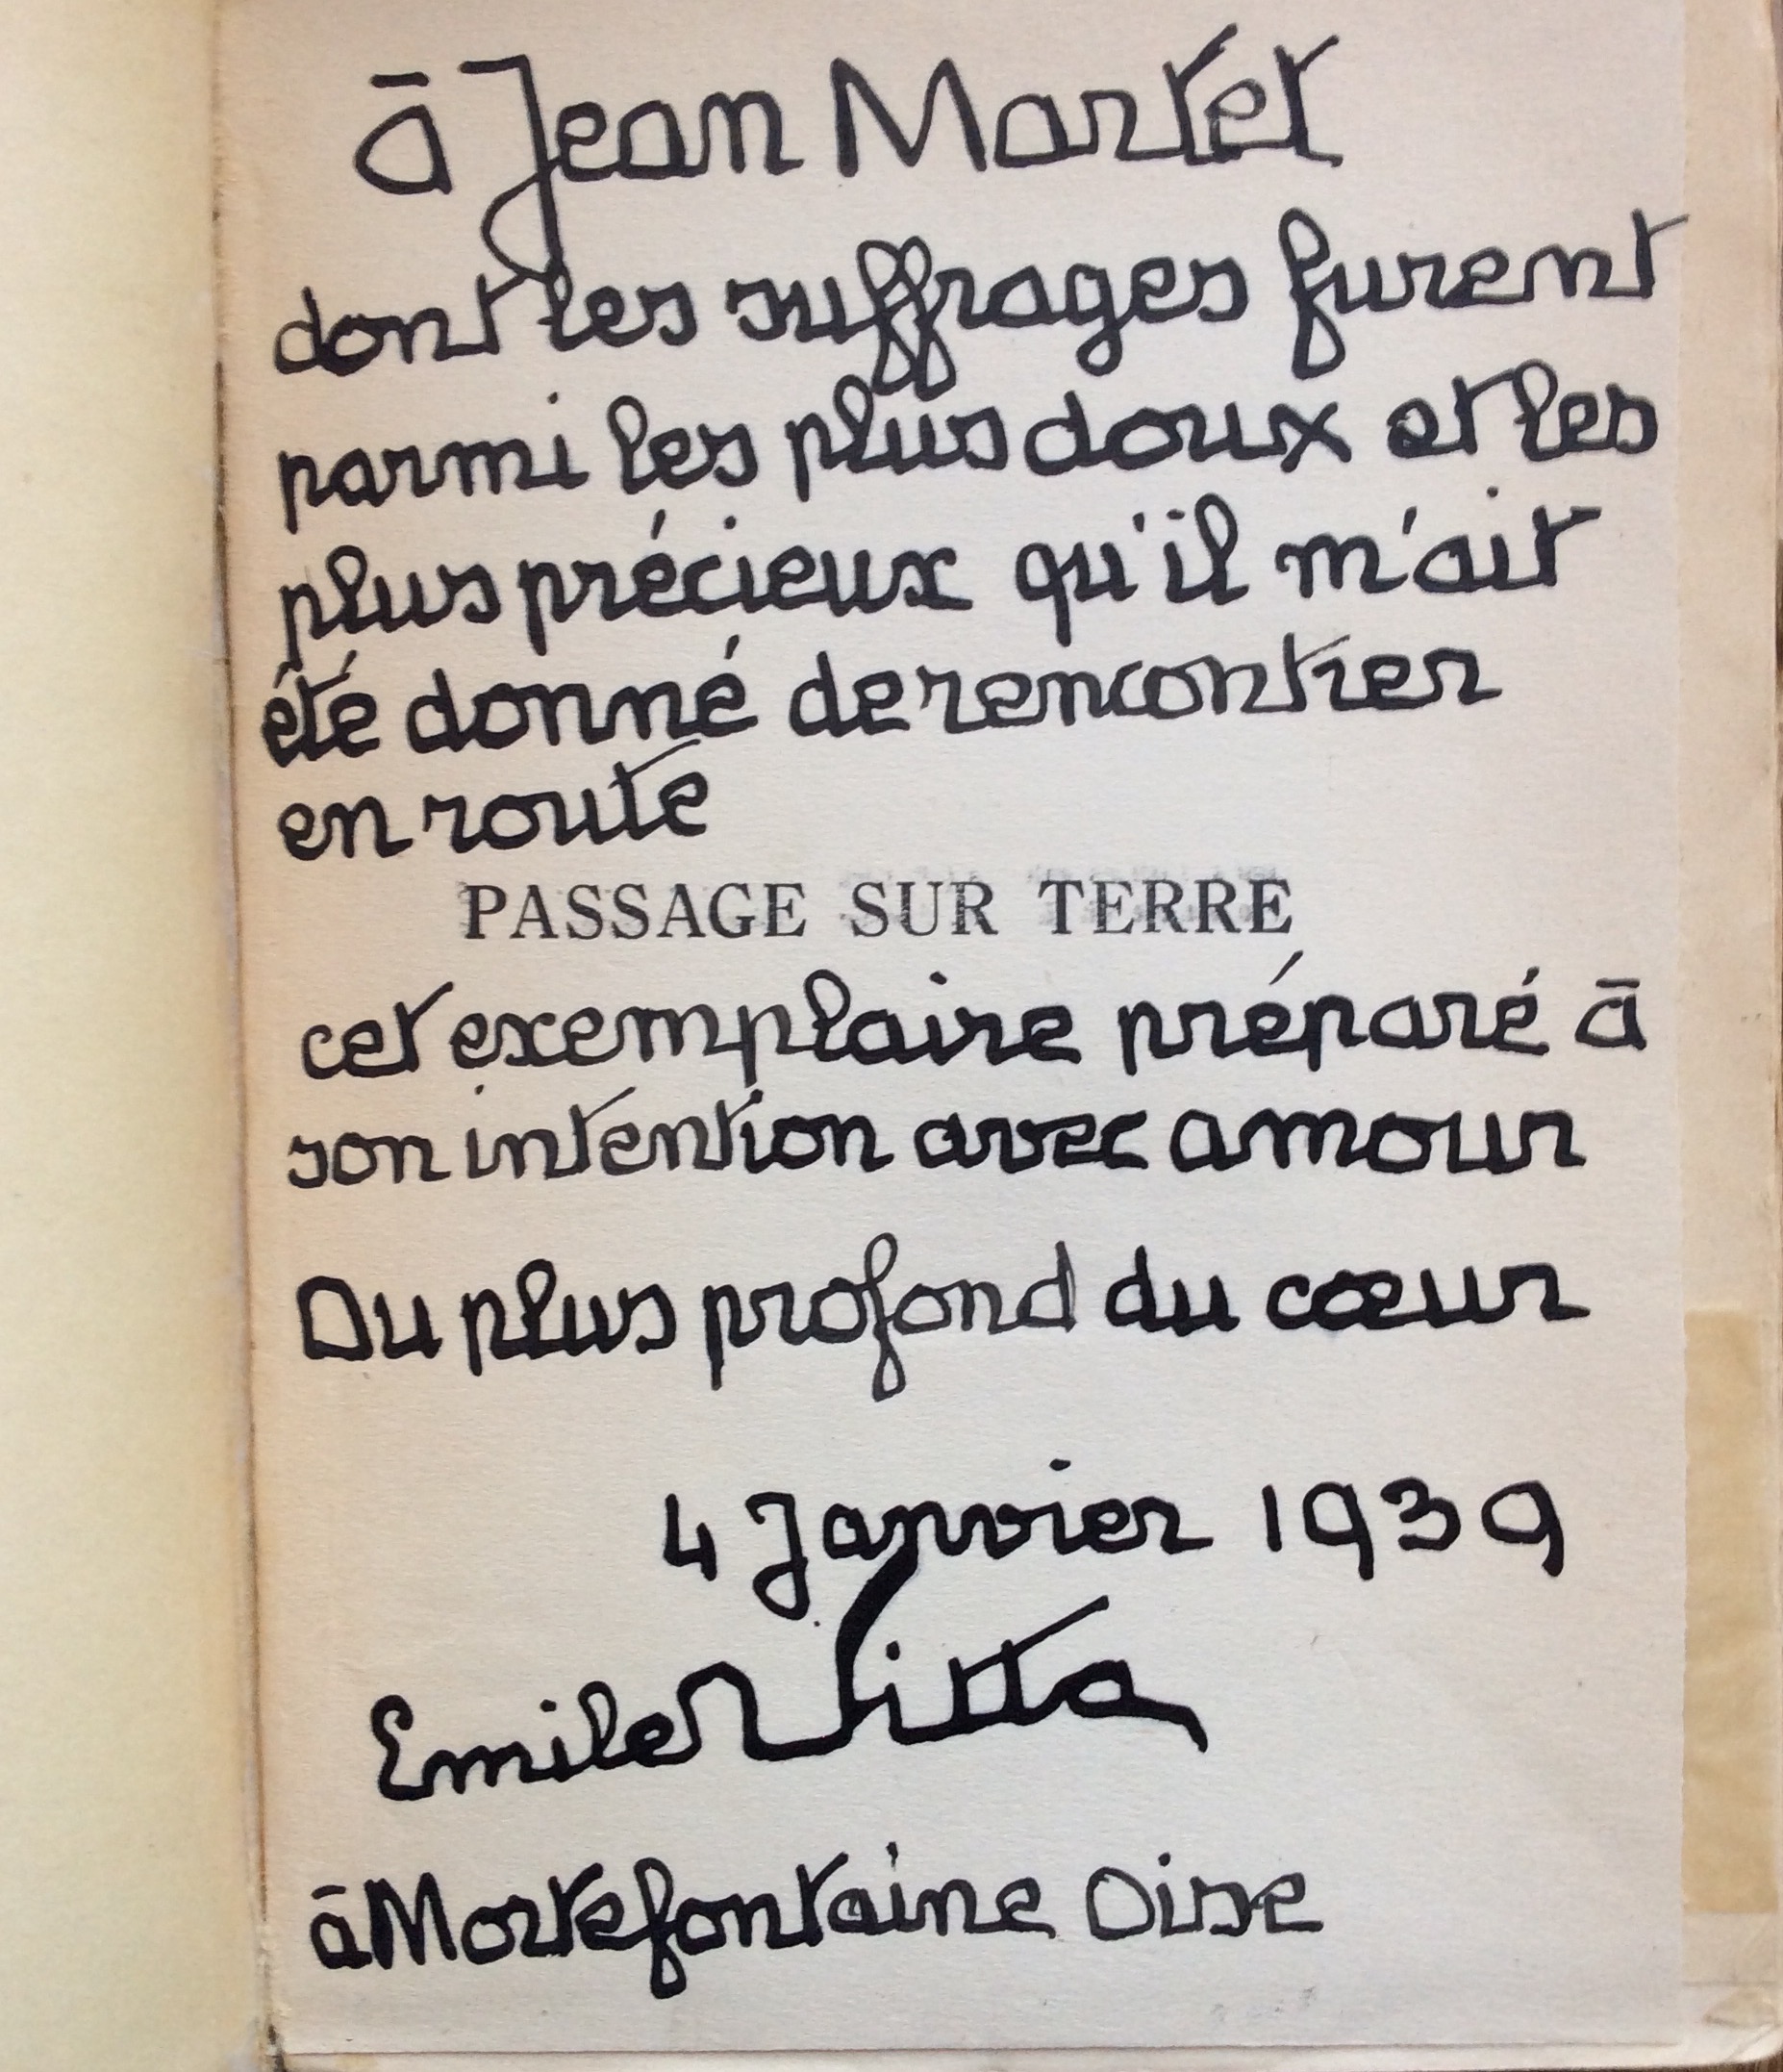 à Jean Martet
dont les suffrages furent
parmi les plus doux et les
plus précieux qu'il m'ait
été donné de rencontrer
en route
PASSAGE SUR TERRE
cet exemplaire préparé à
son intention avec amour
Du plus profond du cœur
4 Janvier 1939
Emile Vitta
à Mortefontaine Oise